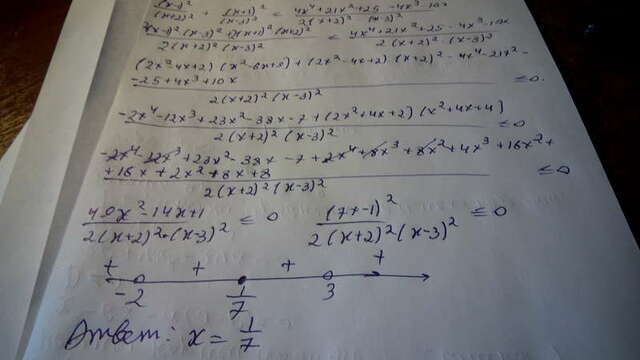 (x-1)² / (x+2)² + (x+1)² / (x-3)² ≤ 4x⁴+21x²+25-4x³-10x / 2(x+2)²(x-3)²
2(x-1)²(x-3)²+2(x+1)²(x+2)² / 2(x+2)²(x-3)² ≤ 4x⁴+21x²+25-4x³-10x / 2(x+2)²(x-3)²
(2x²-4x+2)(x²-6x+9)+(2x²-4x+2)(x+2)²-4x⁴-21x²-
-25+4x³+10x / 2(x+2)²(x-3)² ≤0.
-2x⁴-12x³+23x²-38x-7+(2x²+4x+2)(x²+4x+4) / 2(x+2)²(x-3)² ≤0
-2x⁴-12x³+23x²-38x-7+2x⁴+8x³+8x²+4x³+16x²+
+16x+2x²+8x+8 / 2(x+2)²(x-3)² ≤0
49x²-14x+1 / 2(x+2)²·(x-3)² ≤0 (7x-1)² / 2(x+2)²(x-3)² ≤0
+ + + +
-2 1/7 3
Ответ: x = 1/7